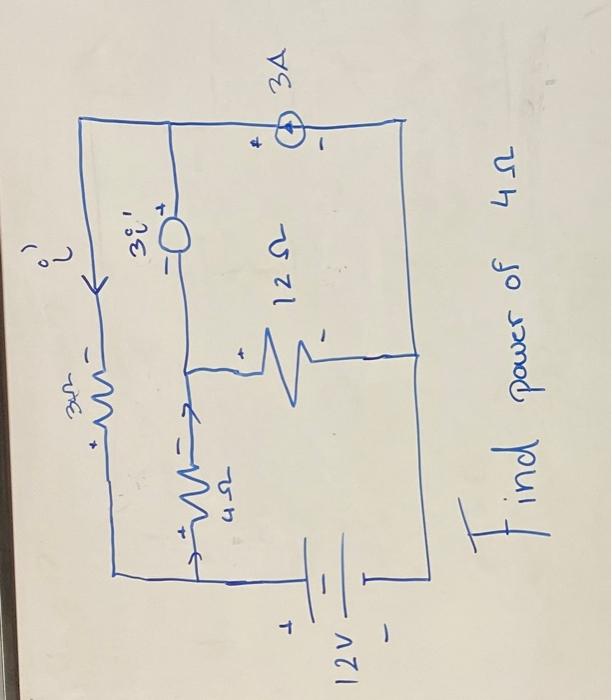 i'
3Ω
3i'
+
-
+
-
+
-
4Ω
+
-
12Ω
+
-
3A
+
-
12V
Find power of 4Ω